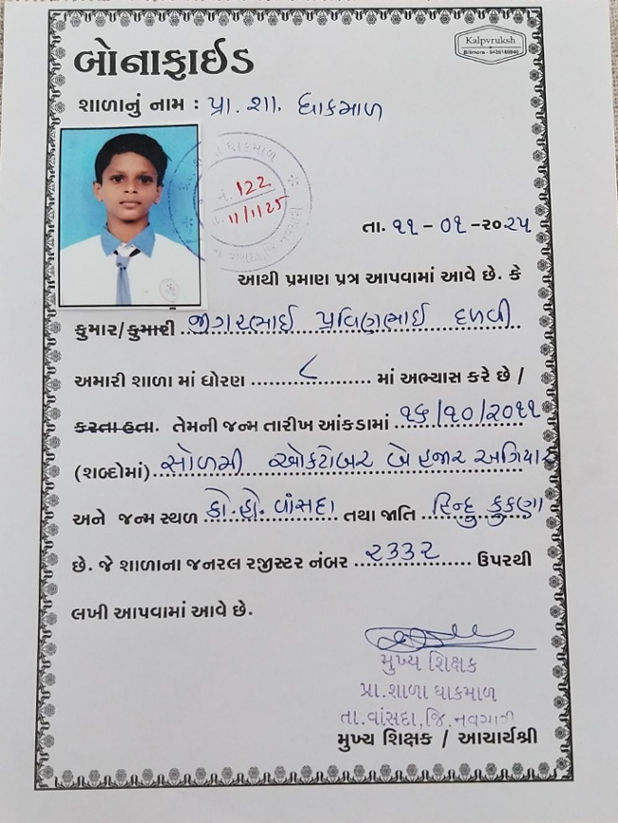 Kalpvruksh
બોનાફાઈડ
શાળાનું નામ : પ્રા. શા. ધાકમાળ
નં. 122
તા. 11/1/25
તા. ૧૧ - ૦૧ - ૨૦૨૫
આથી પ્રમાણ પત્ર આપવામાં આવે છે. કે
કુમાર/કુમારી જીગરભાઈ પ્રવિણભાઈ દળવી
અમારી શાળા માં ધોરણ ૮ માં અભ્યાસ કરે છે /
કરતા હતા. તેમની જન્મ તારીખ આંકડામાં ૧૬/૧૦/૨૦૧૧
(શબ્દોમાં) સોળમી ઓકટોબર બે હજાર અગિયાર
અને જન્મ સ્થળ કો.હો. વાંસદા તથા જાતિ હિન્દુ કુકણા
છે. જે શાળાના જનરલ રજીસ્ટર નંબર ૨૩૩૨ ઉપરથી
લખી આપવામાં આવે છે.
મુખ્ય શિક્ષક
પ્રા.શાળા ધાકમાળ
તા.વાંસદા,જિ.નવસારી
મુખ્ય શિક્ષક / આચાર્યશ્રી